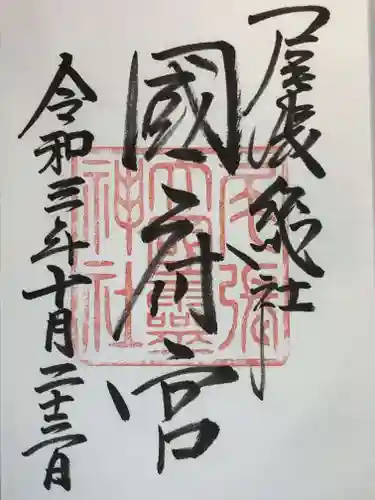 尾張総社
國府宮
令和三年十月二十三日
尾張
大國靈
神社